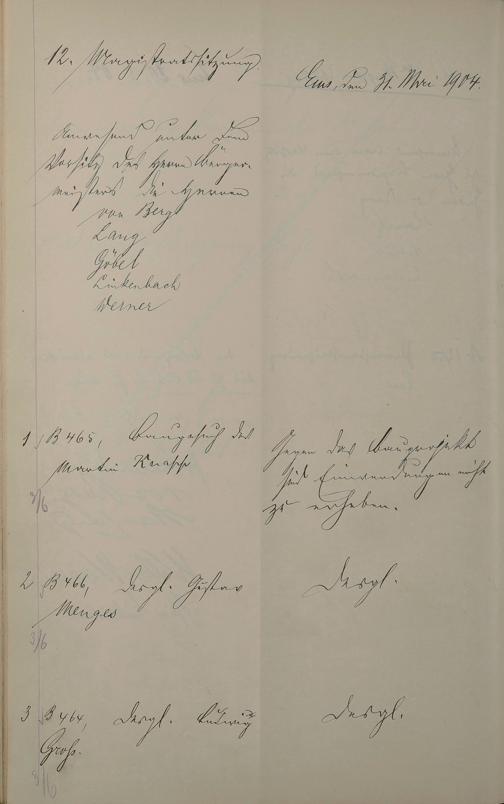 12. Magistratssitzung
Ems, den 31. Mai 1904.
Anwesend unter dem
Vorsitz des Herrn Bürger-
meisters die Herren
von Berg
Lang
Göbel
Linkenbach
Werner
1 B 465, Baugesuch des
Martin Knapp
3/6
Gegen das Bauprojekt
sind Einwendungen nicht
zu erheben.
2 B 466, desgl. Gustav
Menges
3/6
Desgl.
3 B 464, desgl. Ludwig
Groß.
3/6
Desgl.